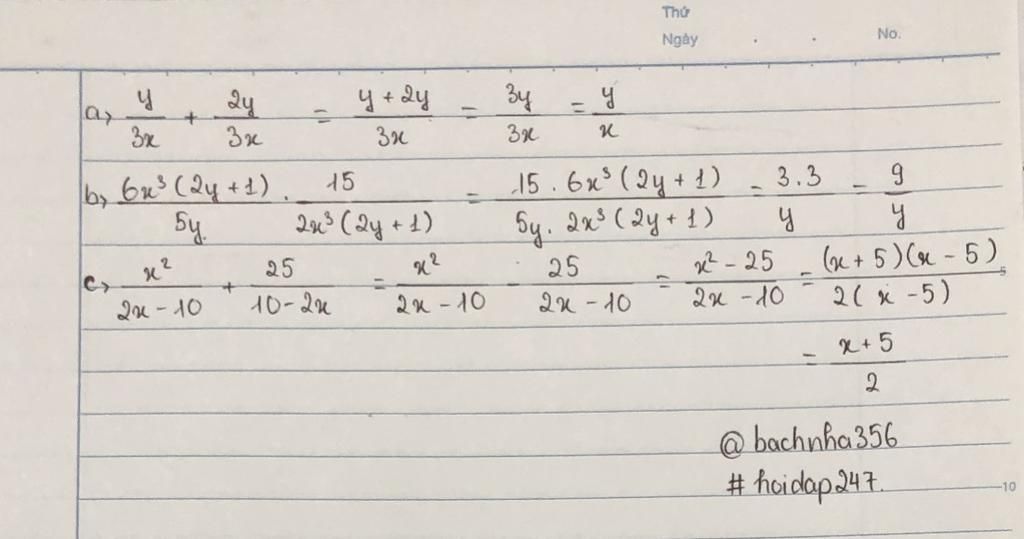 Thứ
Ngày . . No.
a, y/3x + 2y/3x = (y + 2y)/3x = 3y/3x = y/x
b, 6x³(2y+1)/5y . 15/2x³(2y+1) = 15 . 6x³(2y+1)/5y . 2x³(2y+1) = 3.3/y = 9/y
c, x²/(2x-10) + 25/(10-2x) = x²/(2x-10) - 25/(2x-10) = (x²-25)/(2x-10) = (x+5)(x-5)/2(x-5)
5
= (x+5)/2
@bachnha356
#hoidap247.
10